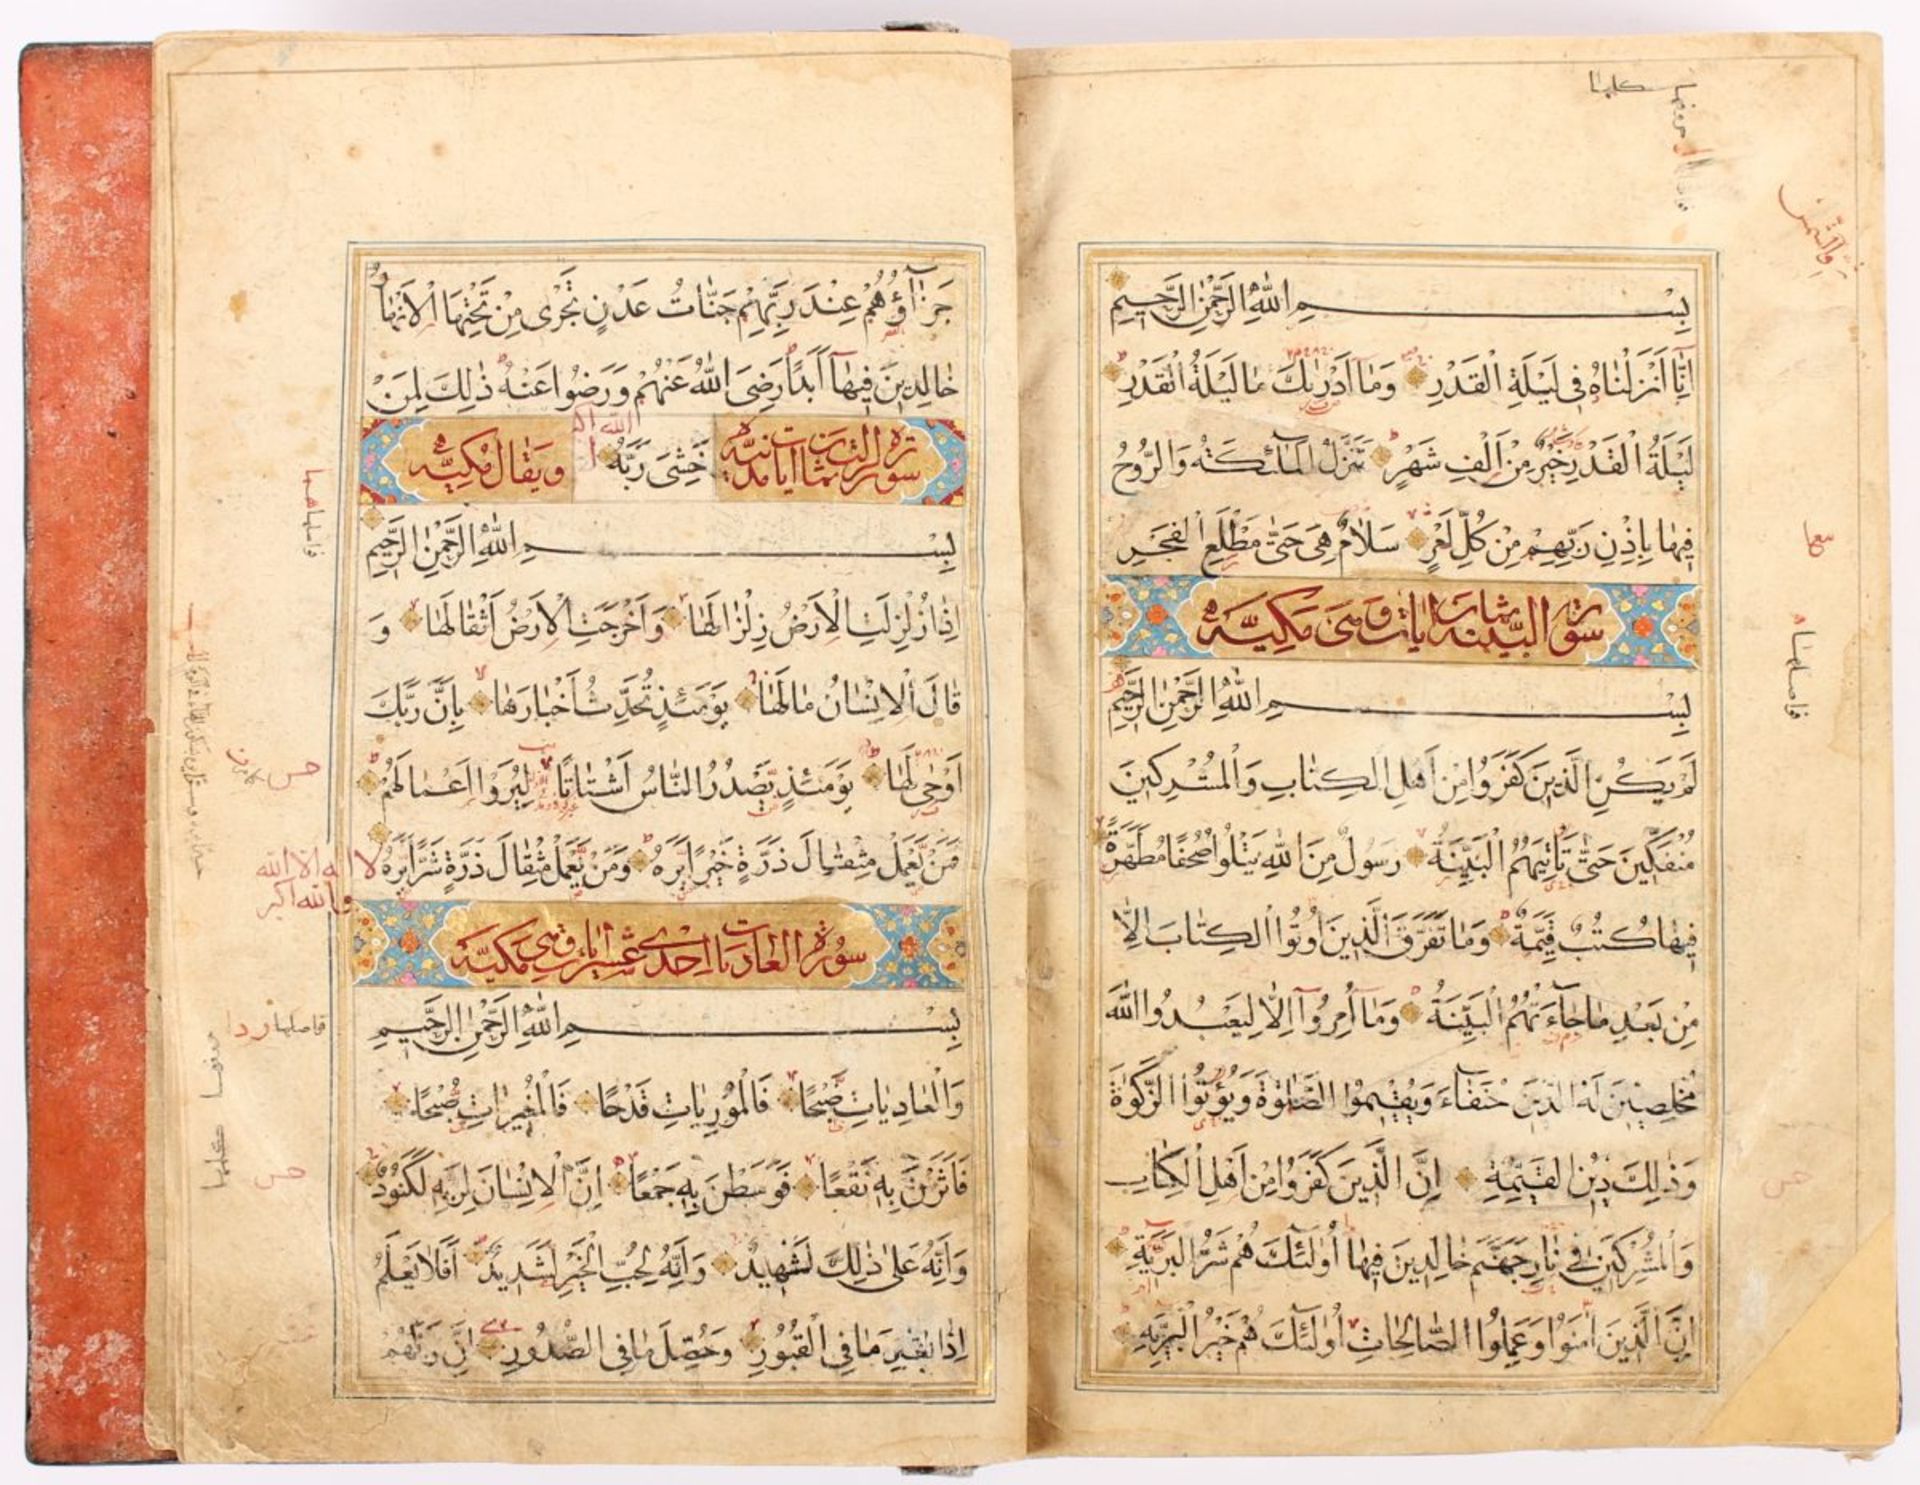 بِسْمِ اللّٰهِ الرَّحْمٰنِ الرَّحِيمِ
اِنَّا اَنْزَلْنَاهُ فِى لَيْلَةِ الْقَدْرِ وَمَا اَدْرٰيكَ مَا لَيْلَةُ الْقَدْرِ
لَيْلَةُ الْقَدْرِ خَيْرٌ مِنْ اَلْفِ شَهْرٍ تَنَزَّلُ الْمَلٰٓئِكَةُ وَالرُّوحُ
فِيهَا بِاِذْنِ رَبِّهِمْ مِنْ كُلِّ اَمْرٍ سَلَامٌ هِىَ حَتّٰى مَطْلَعِ الْفَجْرِ
سورة البينة ثمان ايات وهى مكية
بِسْمِ اللّٰهِ الرَّحْمٰنِ الرَّحِيمِ
لَمْ يَكُنِ الَّذِينَ كَفَرُوا مِنْ اَهْلِ الْكِتَابِ وَالْمُشْرِكِينَ
مُنْفَكِّينَ حَتّٰى تَاْتِيَهُمُ الْبَيِّنَةُ رَسُولٌ مِنَ اللّٰهِ يَتْلُوا صُحُفًا مُطَهَّرَةً
فِيهَا كُتُبٌ قَيِّمَةٌ وَمَا تَفَرَّقَ الَّذِينَ اُوتُوا الْكِتَابَ اِلَّا
مِنْ بَعْدِ مَا جَآءَتْهُمُ الْبَيِّنَةُ وَمَآ اُمِرُوٓا اِلَّا لِيَعْبُدُوا اللّٰهَ
مُخْلِصِينَ لَهُ الدِّينَ حُنَفَآءَ وَيُقِيمُوا الصَّلٰوةَ وَيُؤْتُوا الزَّكٰوةَ
وَذٰلِكَ دِينُ الْقَيِّمَةِ اِنَّ الَّذِينَ كَفَرُوا مِنْ اَهْلِ الْكِتَابِ
وَالْمُشْرِكِينَ فِى نَارِ جَهَنَّمَ خَالِدِينَ فِيهَا اُولٰٓئِكَ هُمْ شَرُّ الْبَرِيَّةِ
اِنَّ الَّذِينَ اٰمَنُوا وَعَمِلُوا الصَّالِحَاتِ اُولٰٓئِكَ هُمْ خَيْرُ الْبَرِيَّةِ
كلمها
حروفها
والشمس
فاصلها
جَزَآؤُهُمْ عِنْدَ رَبِّهِمْ جَنَّاتُ عَدْنٍ تَجْرِى مِنْ تَحْتِهَا الْاَنْهَارُ
خَالِدِينَ فِيهَآ اَبَدًا رَضِىَ اللّٰهُ عَنْهُمْ وَرَضُوا عَنْهُ ذٰلِكَ لِمَنْ
خَشِىَ رَبَّهُ
سورة الزلزلت ثمان ايات مدنية ويقال مكية
بِسْمِ اللّٰهِ الرَّحْمٰنِ الرَّحِيمِ
اِذَا زُلْزِلَتِ الْاَرْضُ زِلْزَالَهَا وَاَخْرَجَتِ الْاَرْضُ اَثْقَالَهَا وَ
قَالَ الْاِنْسَانُ مَا لَهَا يَوْمَئِذٍ تُحَدِّثُ اَخْبَارَهَا بِاَنَّ رَبَّكَ
اَوْحٰى لَهَا يَوْمَئِذٍ يَصْدُرُ النَّاسُ اَشْتَاتًا لِيُرَوْا اَعْمَالَهُمْ
فَمَنْ يَعْمَلْ مِثْقَالَ ذَرَّةٍ خَيْرًا يَرَهُ وَمَنْ يَعْمَلْ مِثْقَالَ ذَرَّةٍ شَرًّا يَرَهُ
سورة العاديات احدى عشر ايات وهى مكية
بِسْمِ اللّٰهِ الرَّحْمٰنِ الرَّحِيمِ
وَالْعَادِيَاتِ ضَبْحًا فَالْمُورِيَاتِ قَدْحًا فَالْمُغِيرَاتِ صُبْحًا
فَاَثَرْنَ بِهِ نَقْعًا فَوَسَطْنَ بِهِ جَمْعًا اِنَّ الْاِنْسَانَ لِرَبِّهِ لَكَنُودٌ
وَاِنَّهُ عَلٰى ذٰلِكَ لَشَهِيدٌ وَاِنَّهُ لِحُبِّ الْخَيْرِ لَشَدِيدٌ اَفَلَا يَعْلَمُ
اِذَا بُعْثِرَ مَا فِى الْقُبُورِ وَحُصِّلَ مَا فِى الصُّدُورِ اِنَّ رَبَّهُمْ
لا اله الا الله
والله اكبر
فاصلها